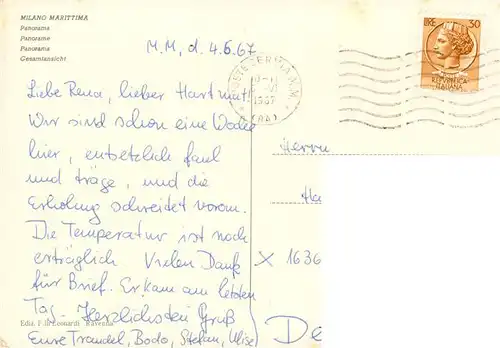 MILANO MARITTIMA
Panorama
Panorame
Panorama
Gesamtansicht
M.M, d. 4.6.67
Liebe Rena, lieber Hartmut!
Wir sind schon eine Woche
hier, entsetzlich faul
und träge, und die
Erholung schreitet voran.
Die Temperatur ist noch
erträglich. Vielen Dank
für Brief. Er kam am letzten
Tag. Herzlichsten Gruß
Eure Traudel, Bodo, Stefan,
Ediz. F.lli Leonardi Ravenna
1967
(RA)
30
REPUBBLICA
ITALIANA
Herrn
Ha
X 1636
De